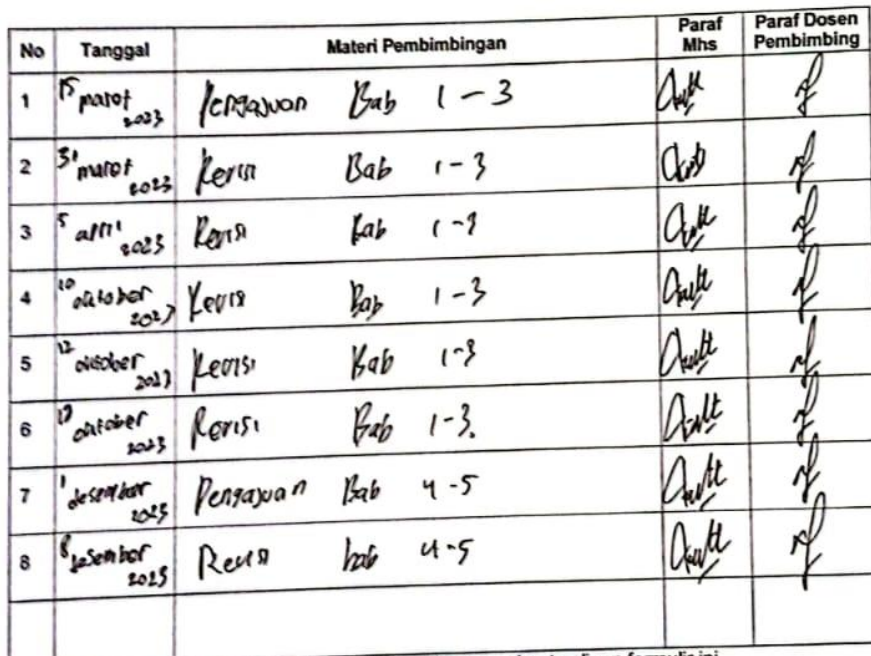 No Tanggal Materi Pembimbingan Paraf Mhs Paraf Dosen Pembimbing
1 15 maret 2023 Pengajuan Bab 1 - 3
2 31 maret 2023 Revisi Bab 1 - 3
3 5 april 2023 Revisi Bab 1 - 3
4 10 oktober 2023 Revisi Bab 1 - 3
5 12 oktober 2023 Revisi Bab 1 - 3
6 oktober 2023 Revisi Bab 1 - 3.
7 1 desember 2023 Pengajuan Bab 4 - 5
8 8 desember 2023 Revisi bab 4 - 5
formulir ini